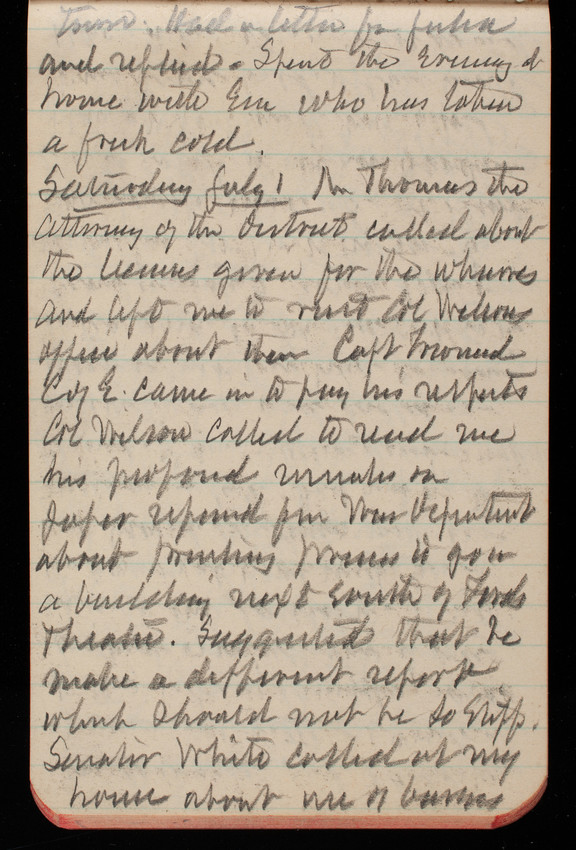 Had a letter fr Julia
and replied. Spent the Evening at
home with Em who has taken
a fresh cold.
Saturday July 1 Mr Thomas the
Attorney of the District called about
the licenses given for the wharves
and left me to visit Col Wilsons
office about them Capt Townsend
Co E. came in to pay his respects
Col Wilson called to read me
his proposed remarks on
paper from War Department
about printing Presses is
a building next South of Fords
Theatre. Suggested that he
make a different report
which should not be so stiff.
Senator White called at my
house about use of